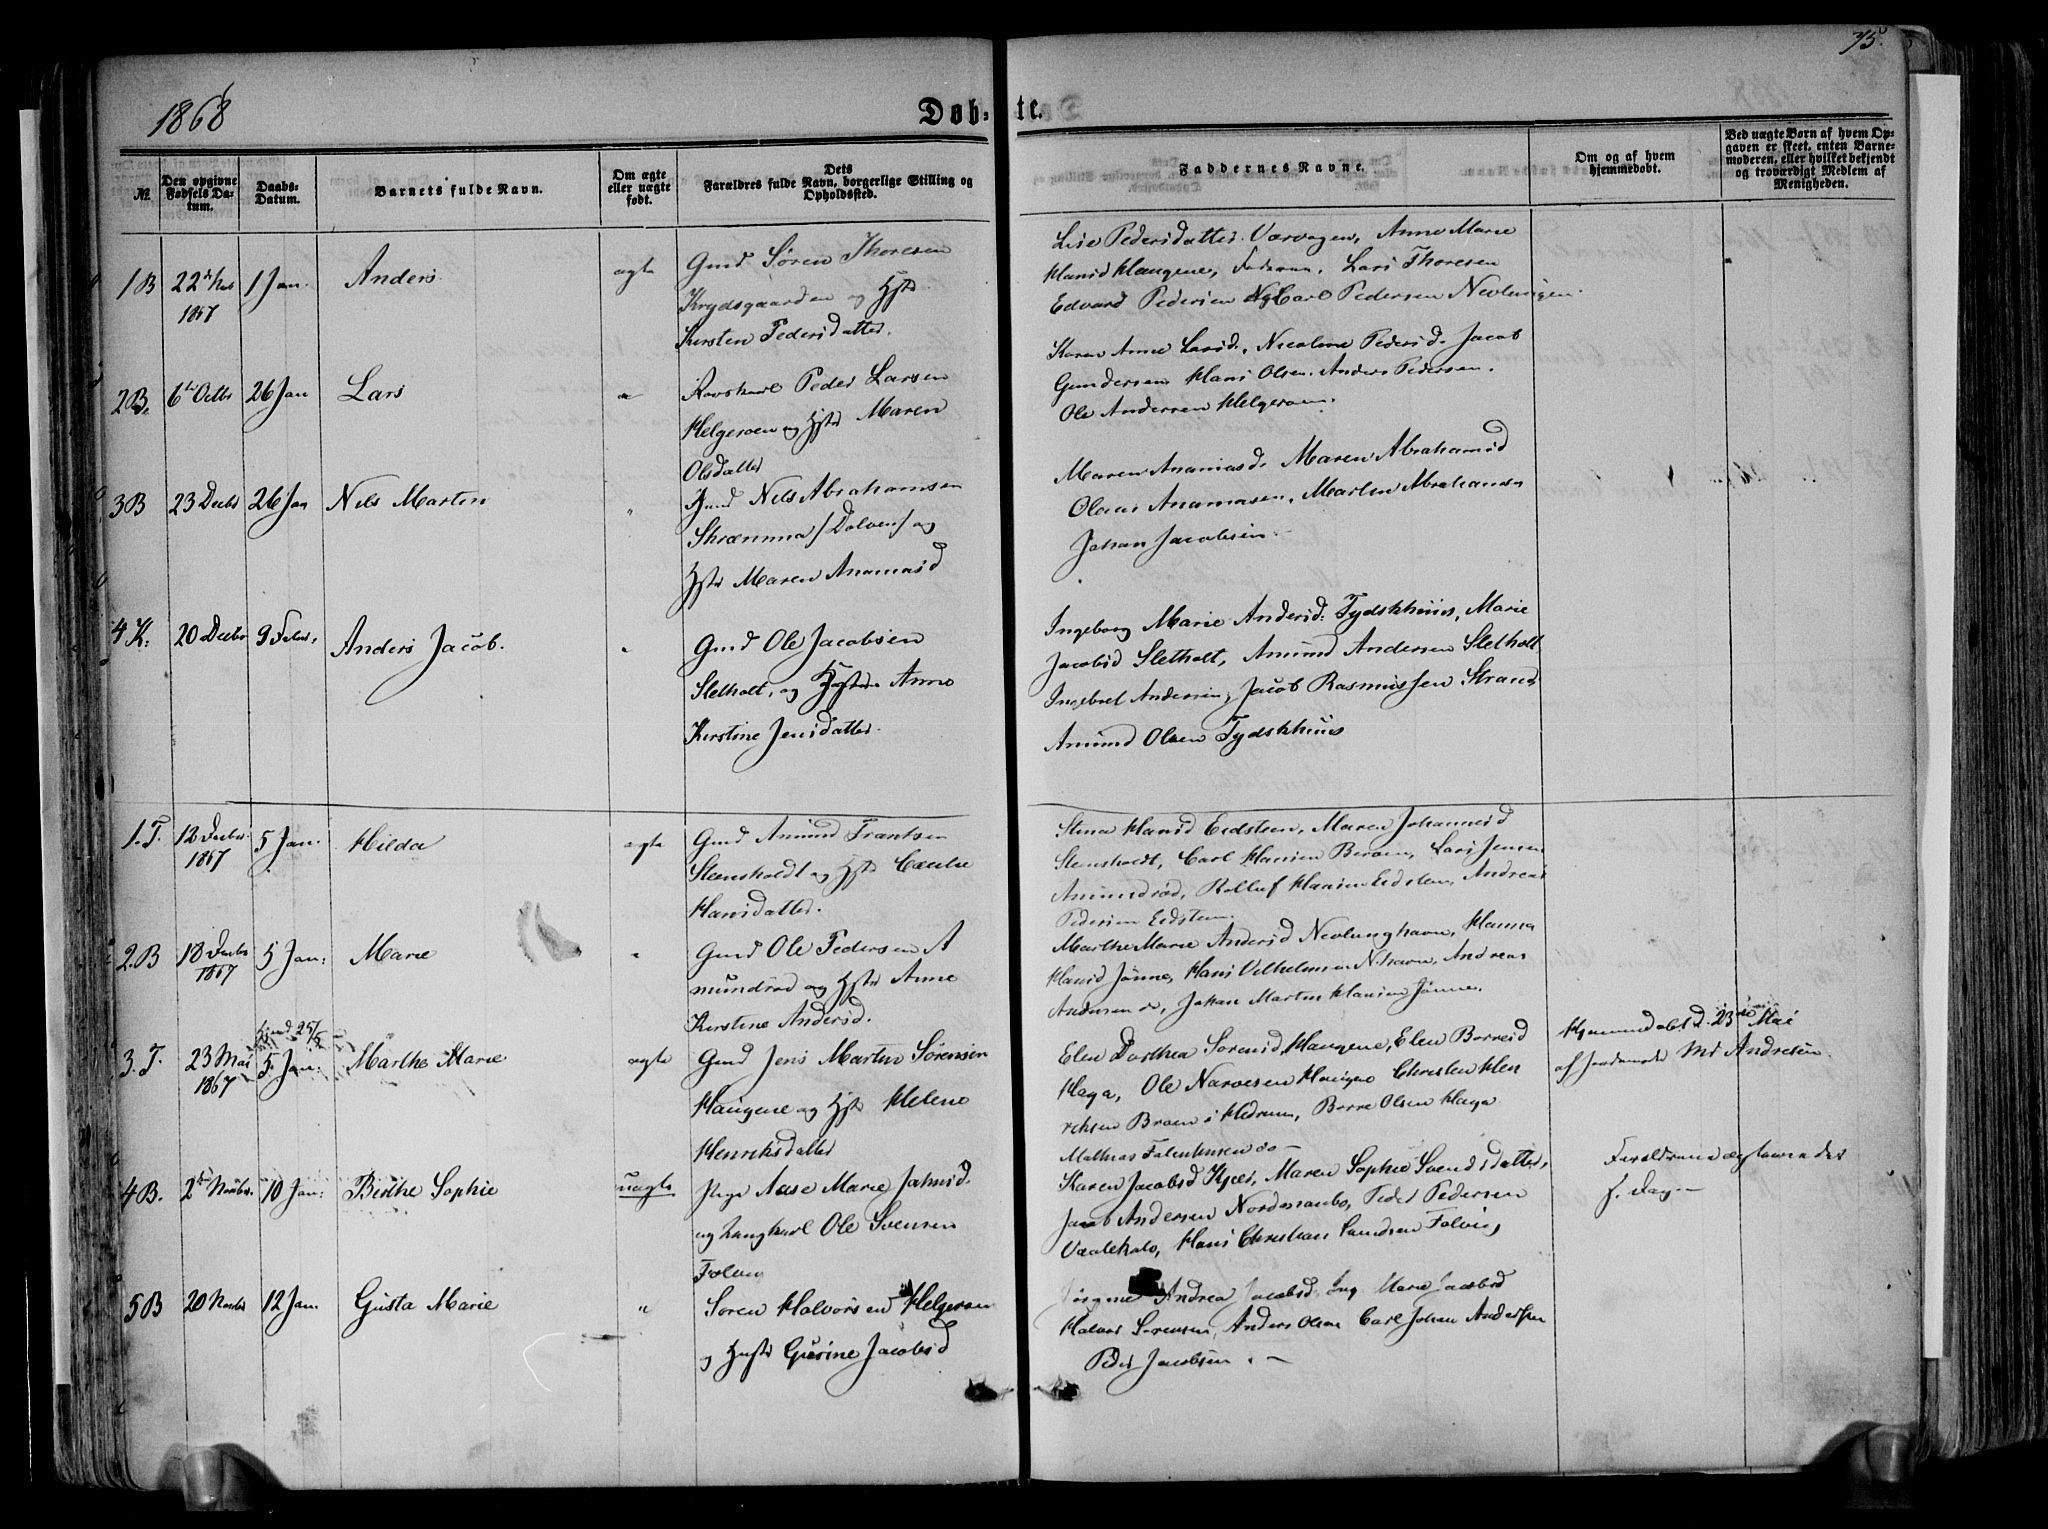 75.
1868
Døb- te.
№
Den opgivne Fødsels Da- tum.
Daabs- Datum.
Barnets fulde Navn.
Om ægte eller uægte født.
Dets Forældres fulde Navn, borgerlige Stilling og Opholdssted.
Faddernes Navne.
Om og af hvem hjemmedøbt.
Ved uægte Børn af hvem Op- gaven er skeet, enten Barne- moderen, eller hvilket bekjendt og troværdigt Medlem af Menigheden.
1B 22de Novb 1867 1 Jan. Anders ægte Gmd Søren Thoresen
Krydsgaarden og Hst
Kirsten Pedersdatter.
Lise Pedersdatter Varvagen, Anne Marie
Hansd Haugene, Faderen, Lars Thoresen
Edvard Pedersen Carl Pedersen Nevlungen.
2B. 6te Octbr 26 Jan Lars " Peder Larsen
Helgeroen og Hst Maren
Olsdatter
Karen Anne Larsd., Nicoline Pedersd. Jacob
Gundersen Hans Olsen. Anders Pedersen.
Ole Andersen Helgeroen.
3B 23 Decbr 26 Jan Nils Martin " Gmd Nils Abrahamsen
Skræmma /Dolven/ og
Hst Maren Ananiasd
Maren Ananiasd. Maren Abrahamsd
Olaus Ananiasen, Martin Abrahamsn
Johan Jacobsen.
4 K. 20 Decbr 9 Febr. Anders Jacob. " Gmd Ole Jacobsen
Sletholt, og Hst Anne
Kirstine Jensdatter.
Ingeborg Marie Andersd. Tydskhuus, Marie
Jacobsd Sletholt, Amund Andersen Sletholt
Ingebret Andersen, Jacob Rasmussen Strand
Amund Olsen Tydskhuus
1. T. 12 Decbr 1867 5 Jan. Hilda ægte Gmd Amund Frantsen
Steensholdt og Hst Cecilie
Hansdatter.
Stina Hansd Eidsteen, Maren Johannesd
Stensholdt, Carl Hansen Beroen, Lars Jensen
Amundrød, Rolluf Hansen Eidsten, Andreas
Pedersen Eidsten.
2. B 18 Decbr 1867 5 Jan. Marie " Gmd Ole Pedersen A
mundrød og Hst Anne
Kirstine Andersd.
Marthe Marie Andersd Nevlunghavn, Hanna
Hansd Jønne, Hans Vilhelmsen N.havn, Andreas
Andersen do, Johan Martin Hansen Jønne.
3. T. 23 Mai 1867 Hjmd 25/5 5 Jan. Marthe Marie ægte Gmd Jens Martin Sørensen
Haugene og Hst Helene
Henriksdatter
Elen Dorthea Sørensd, Haugene, Elen Borresd
Haga, Ole Narvesen Haugene Christen Hen
riksen Broen i Hedrum, Borre Olsen Haga
Mathias Falenksen do -
Hjemmedøbt d. 23de Mai
af Jordemoder Md Andresen
4 B. 2den Novbr. 10 Jan. Birthe Sophie uægte Pige Aase Marie Johnsd.
og Ungkarl Ole Svensen
Folvig
Karen Jacobsd Kjær, Maren Sophie Svendsdatter,
Jacob Andersen Nordmanbo, Peder Pedersen
Vaalekalv, Hans Christian Svendsen Folvig
Forældrene ægteviedes
s. Dag -
5B 20 Novbr 12 Jan. Gusta Marie " Søren Halvorsen Helgeroen
og Hst Gurine Jacobsd
Jørgine Andrea Jacobsd, Ing. Marie Jacobsd
Halvor Sørensen, Anders Olsen Carl Johan Andersen
Peder Jacobsen. -